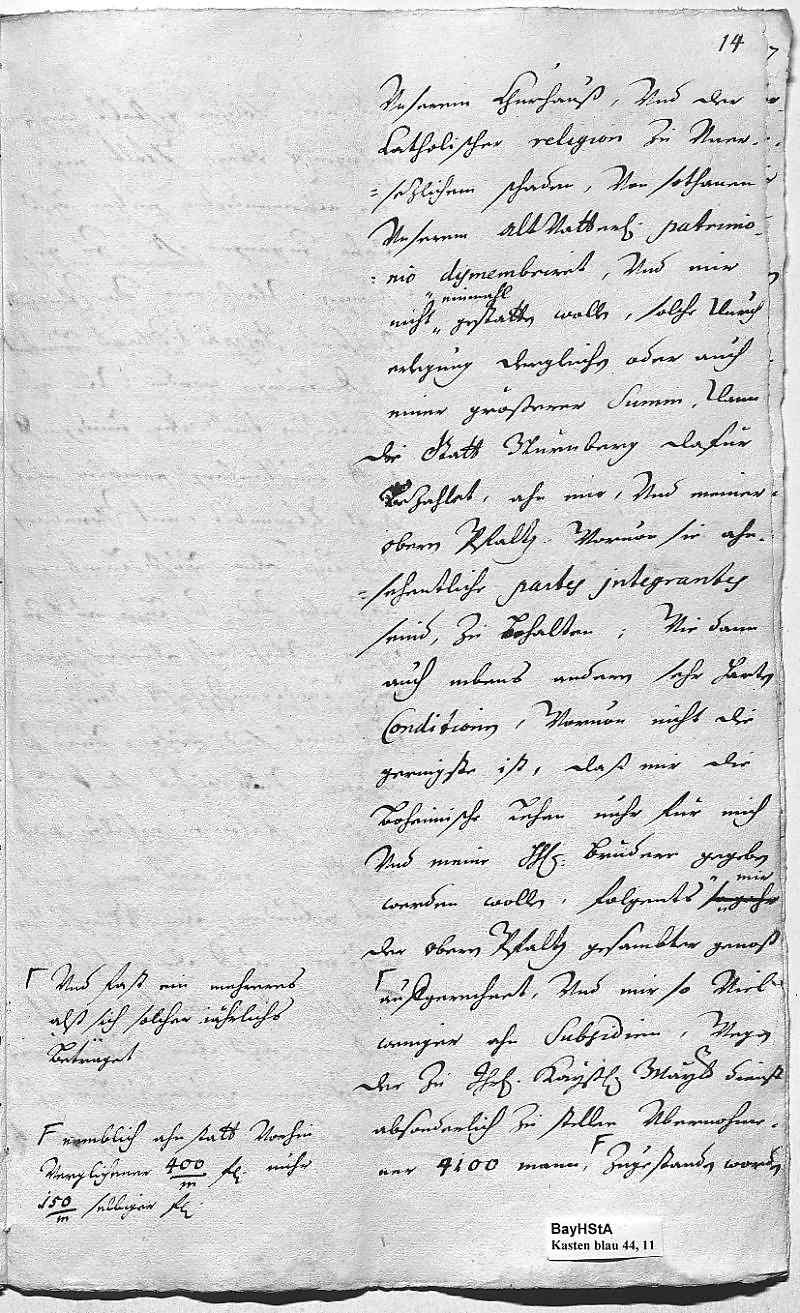 14
Unserem Churhauß, Und der
Catholischer religion zu Uner-
=sezlichem schaden, Von sothanem
Unserem alt Vatterl: patrimo-
=nio dismembriret, Und mir
einmahl
nicht gestatten wollen, solche durch
erlegung dergleichen oder auch
einer grösserer Summ, dann
die Statt Nürnberg dafür
Bezahlet, ahn mir, Und meiner
obern Pfaltz Voruon sie ahn-
=sehentliche partes integrantes
seind, zu Behalten; Wie dann
auch nebens andern sehr harten
Conditionen, Woruon nicht die
geringste ist, daß mir die
Boheimische Lehen nuhr für mich
Und meine Brüdere gegeben
mir
werden wollen, folgents
der obern Pfaltz gesambter genoß
aufgerechnet, Und mir so Viel
weniger ahn Subsidien, Wegen
der zu Ihrer Kaysl: Mayt dienst
absonderlich zu stellen Ubernohme-
ner 4100 mann, Zugestanden worden
Und fast ein mehreres
alß sich solcher iährlichs
Beträget
nemblich ahnstatt Vorhin
Verglichener 400/m fl: nuhr
150/m selbiger fl:
BayHStA
Kasten blau 44, 11